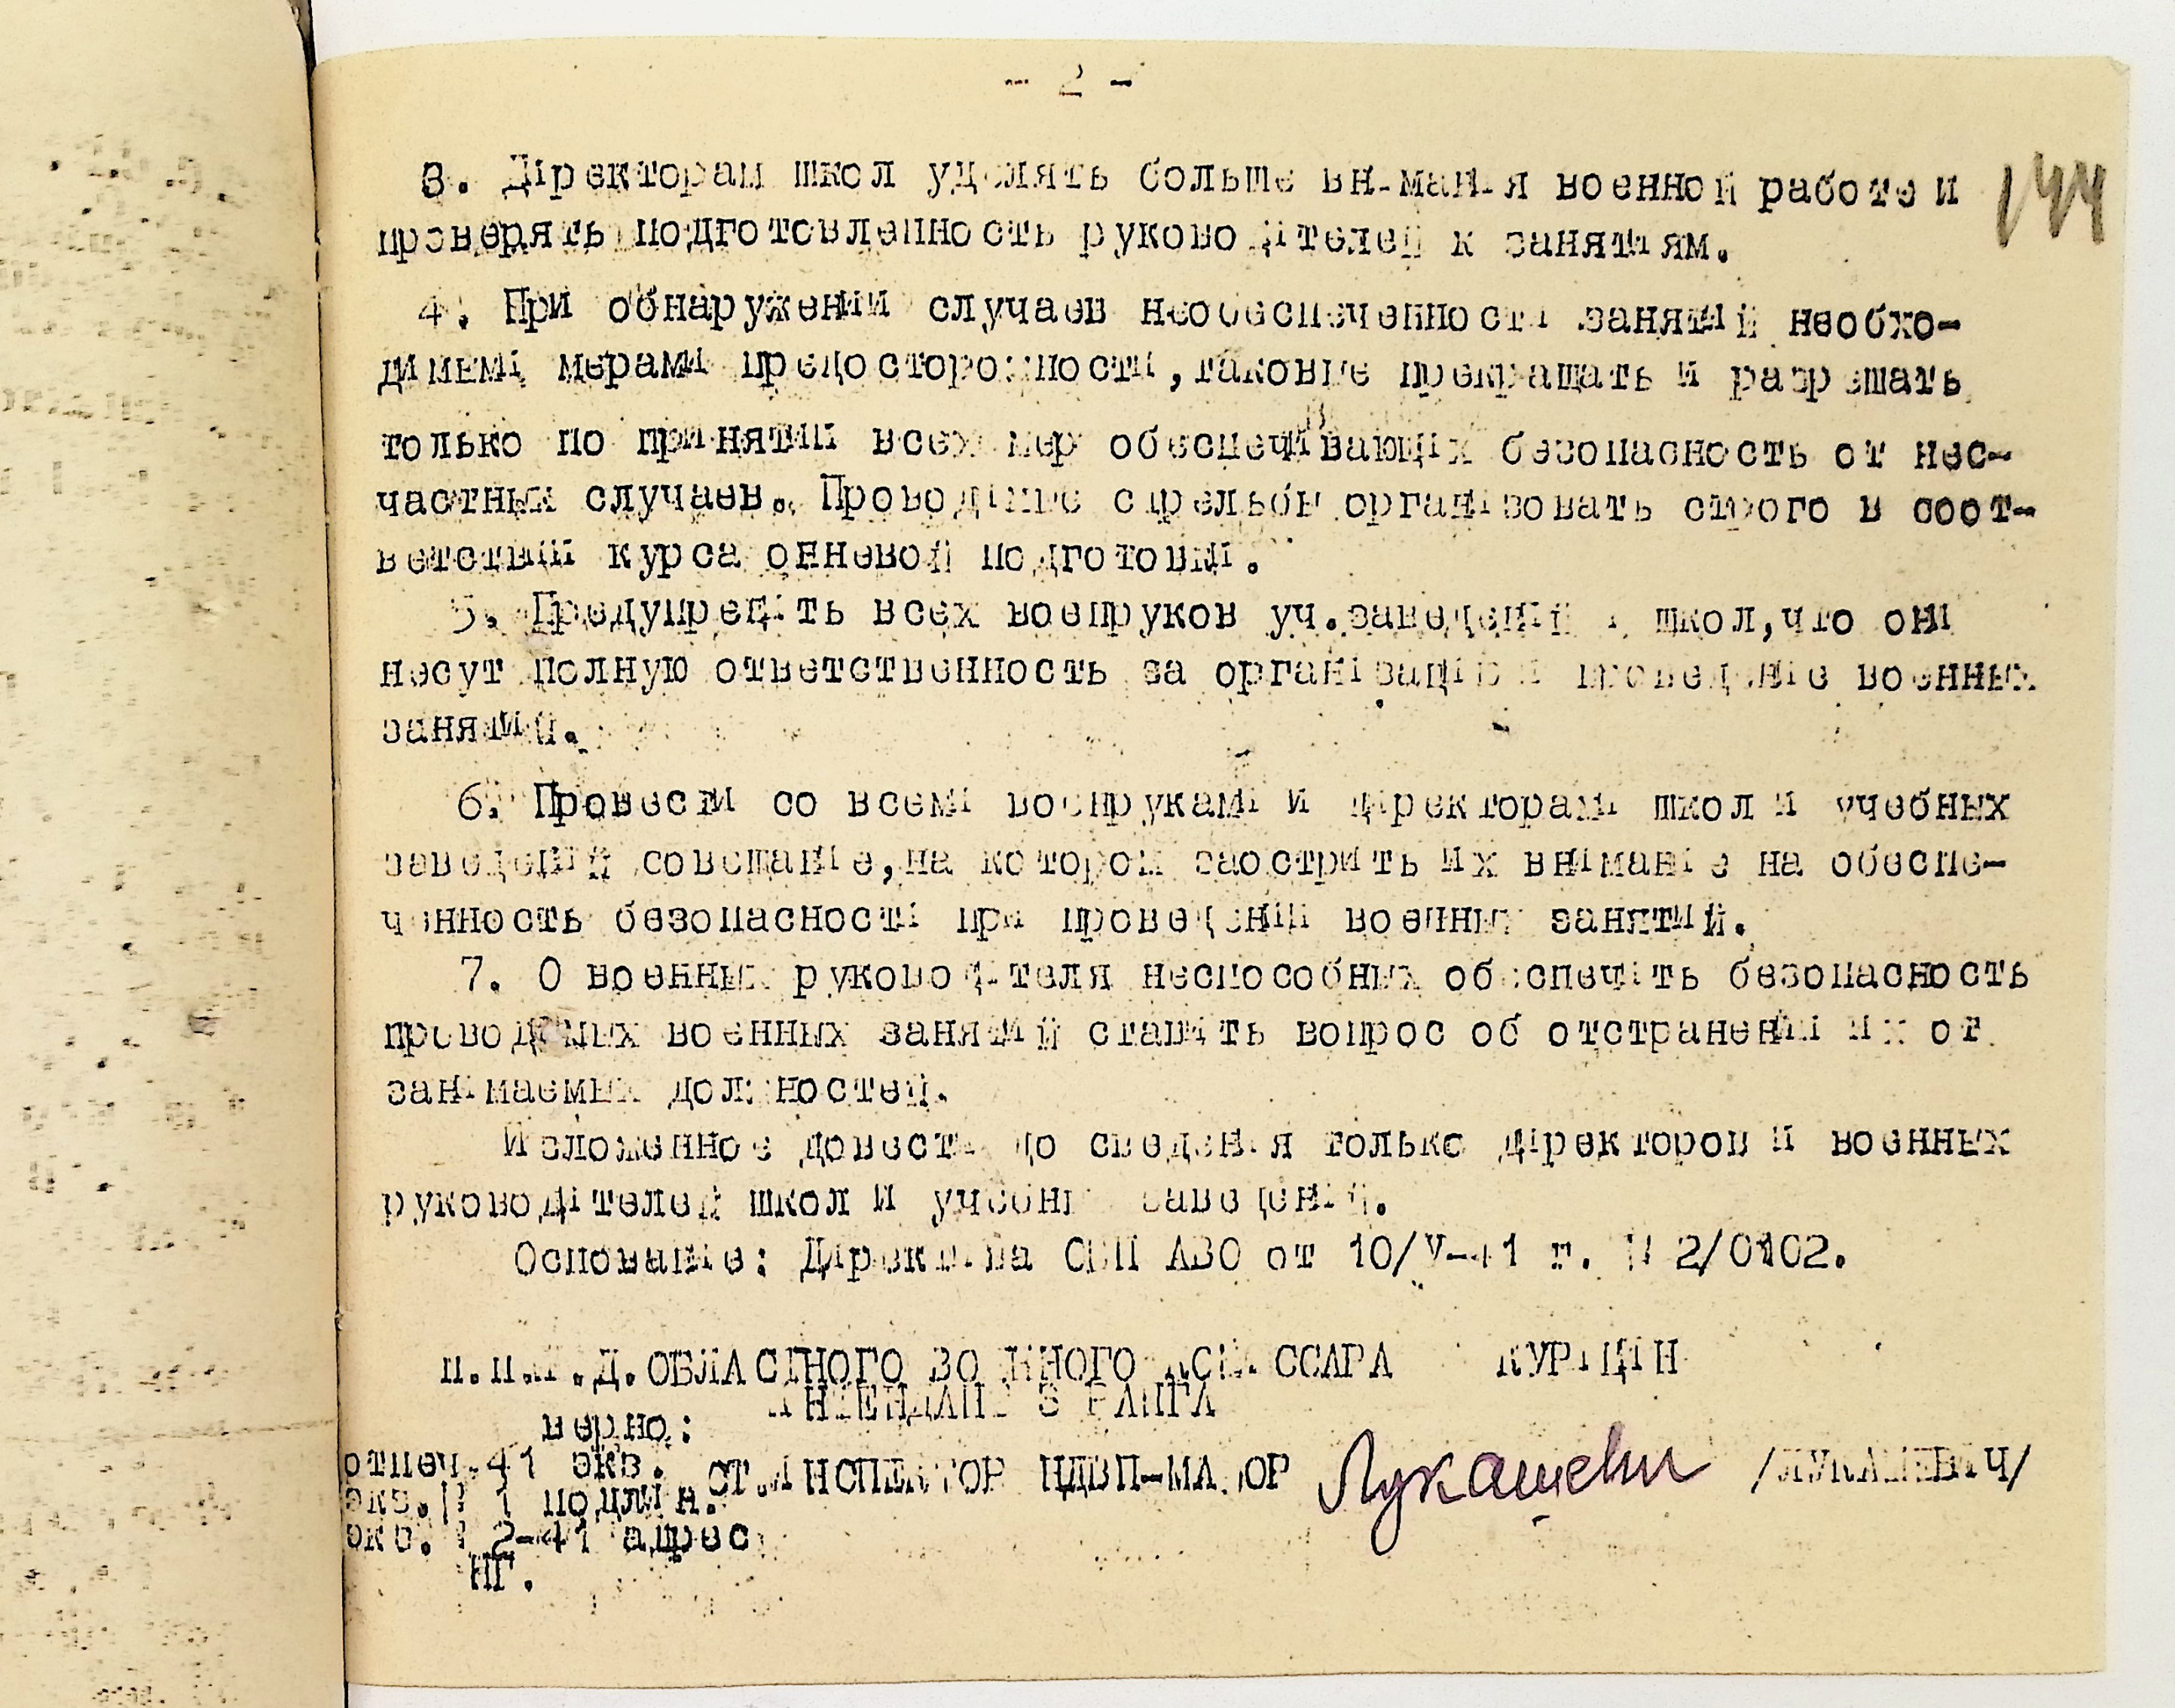 - 2 -
144
3. Директорам школ уделять больше внимания военной работе и
проверять подготовленность руководителей к занятиям.
4. При обнаружении случаев необеспеченности занятий необхо-
димыми мерами предосторожности, таковые прекращать и разрешать
только по принятии всех мер обеспечивающих безопасность от нес-
частных случаев. Проводимые стрельбы организовать строго в соот-
ветствии курса огневой подготовки.
5. Предупредить всех военруков уч.заведений и школ,что они
несут полную ответственность за организацию и проведение военных
занятий.
6. Провести со всеми военруками и директорами школ и учебных
заведений совещание,на котором заострить их внимание на обеспе-
ченность безопасности при проведении военных занятий.
7. О военных руководителя неспособных обеспечить безопасность
проводимых военных занятий ставить вопрос об отстранении их от
занимаемых должностей.
Изложенное довести до сведения только директоров и военных
руководителей школ и учебных заведений.
Основание: Директива САВО от 10/V-41 г. № 2/0102.
п.п.И.Д.ОБЛАСТНОГО ВОЕННОГО КОМИССАРА КУРИЦИН
ИНТЕНДАНТ 3 РАНГА
верно:
СТ.ИНСПЕКТОР НДВП-МАЙОР Лукашевич /ЛУКАШЕВИЧ/
отпеч.41 экз.
экз.№ 1 подлин.
экз.№ 2-41 адрес
НГ.